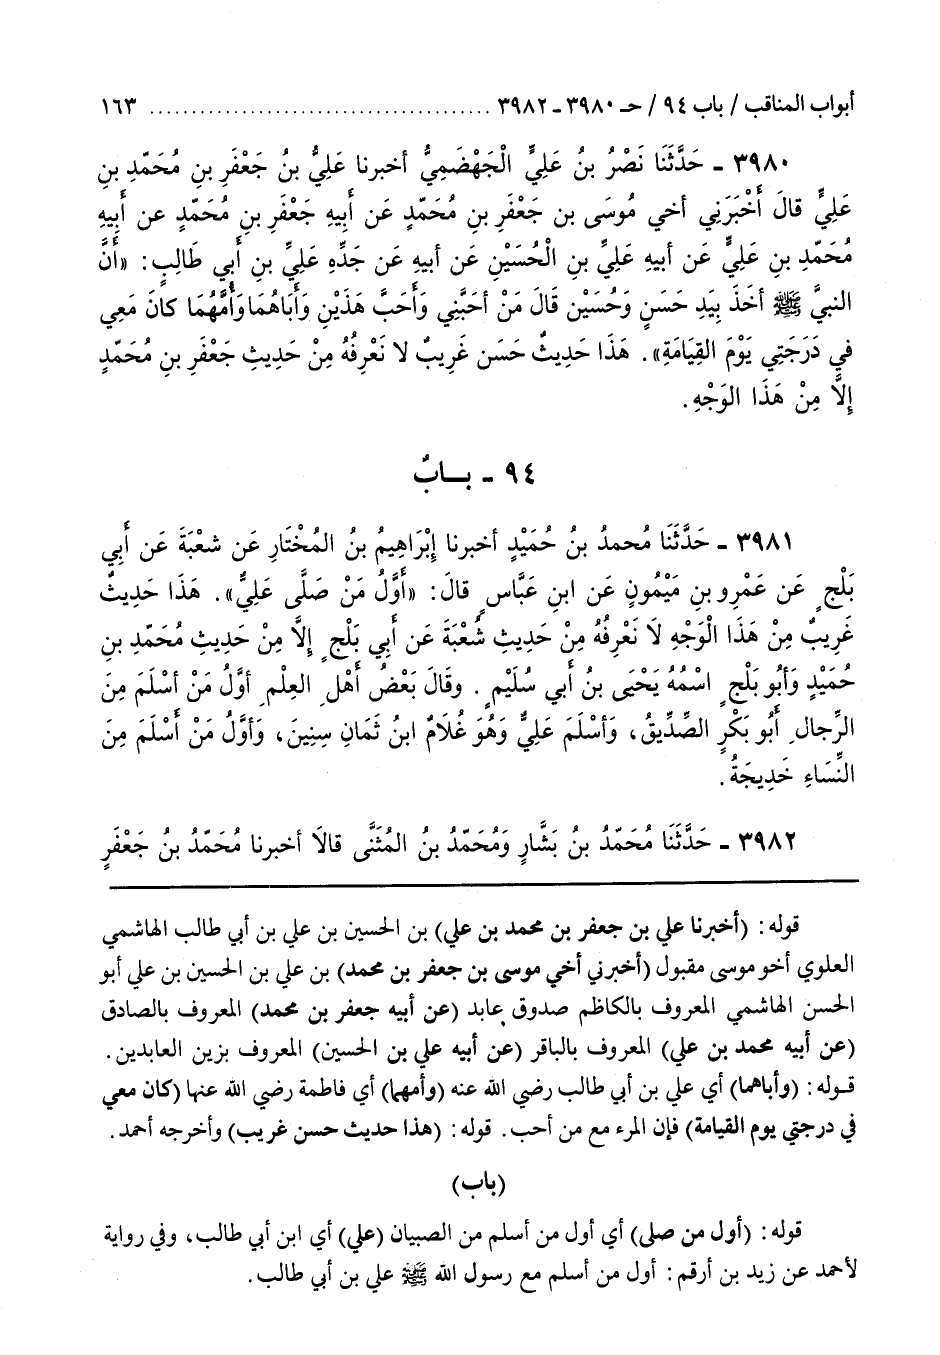 أبواب المناقب / باب ٩٤ / حـ ٣٩٨٠ ـ ٣٩٨٢ ......................................... ١٦٣
٣٩٨٠ ـ حَدَّثَنَا نَصْرُ بنُ عَلِيٍّ الْجَهْضَمِيُّ أخبرنا عَلِيُّ بنُ جَعْفَرِ بنِ مُحَمّدِ بنِ
عَلِيٍّ قالَ أَخْبَرَنِي أخي مُوسَى بن جَعْفَرِ بنِ مُحَمّدٍ عَن أَبِيهِ جَعْفَرِ بنِ مُحَمّدٍ عن أَبِيهِ
مُحَمّدِ بنِ عَلِيٍّ عَن أبيهِ عَلِيِّ بنِ الْحُسَيْنِ عَن أبيهِ عَن جَدِّهِ عَلِيِّ بنِ أَبي طَالِبٍ: «أنَّ
النبيَّ ﷺ أخَذَ بِيَدِ حَسَنٍ وَحُسَيْنٍ قَالَ مَنْ أحَبَّنِي وَأَحَبَّ هَذَيْنِ وَأَبَاهُمَا وَأُمَّهُمَا كانَ مَعِي
في دَرَجَتِي يَوْمَ القِيَامَةِ». هَذَا حَدِيثٌ حَسَن غَرِيبٌ لا نَعْرِفُهُ مِنْ حَدِيثِ جَعْفَرِ بنِ مُحَمّدٍ
إلاَّ مِنْ هَذَا الوَجْهِ.
٩٤ ـ بــابٌ
٣٩٨١ ـ حَدَّثَنَا مُحمدُ بنُ حُمَيْدٍ أخبرنا إبْرَاهِيمُ بنُ المُخْتَارِ عَن شعْبَةَ عَن أَبِي
بَلْجٍ عَن عَمْرِو بنِ مَيْمُونٍ عَن ابنِ عَبَّاسٍ قالَ: «أَوَّلُ مَنْ صَلَّى عَلِيٌّ». هَذَا حَدِيثٌ
غَرِيبٌ مِنْ هَذَا الْوَجْهِ لاَ نَعْرِفُهُ مِنْ حَدِيثِ شُعْبَةَ عَن أَبِي بَلْجٍ إلاَّ مِنْ حَدِيثِ مُحَمّدِ بنِ
حُمَيْدٍ وَأبُو بَلْجٍ اسْمُهُ يَحْيَى بنُ أَبي سُلَيْمٍ. وقَالَ بَعْضُ أَهْلِ العِلْمِ أوَّلُ مَنْ أسْلَمَ مِنَ
الرِّجالِ أَبُو بَكْرٍ الصِّدِّيقُ، وَأسْلَمَ عَلِيٌّ وَهُوَ غُلاَمٌ ابنُ ثَمَانِ سِنِينَ، وَأوَّلُ مَنْ أَسْلَمَ مِنَ
النِّسَاءِ خَدِيجَةُ.
٣٩٨٢ ـ حَدَّثَنَا مُحَمّدُ بنُ بَشَّارٍ وَمُحَمّدُ بنُ المُثَنَّى قالاَ أخبرنا مُحَمّدُ بنُ جَعْفَرٍ
قوله: (أخبرنا علي بن جعفر بن محمد بن علي) بن الحسين بن علي بن أبي طالب الهاشمي
العلوي أخو موسى مقبول (أخبرني أخي موسى بن جعفر بن محمد) بن علي بن الحسين بن علي أبو
الحسن الهاشمي المعروف بالكاظم صدوق عابد (عن أبيه جعفر بن محمد) المعروف بالصادق
(عن أبيه محمد بن علي) المعروف بالباقر (عن أبيه علي بن الحسين) المعروف بزين العابدين.
قـوله: (وأباهما) أي علي بن أبي طالب رضي الله عنه (وأمهما) أي فاطمة رضي الله عنها (كان معي
في درجتي يوم القيامة) فإن المرء مع من أحب. قوله: (هذا حديث حسن غريب) وأخرجه أحمد.
(باب)
قوله: (أول من صلى) أي أول من أسلم من الصبيان (علي) أي ابن أبي طالب، وفي رواية
لأحمد عن زيد بن أرقم: أول من أسلم مع رسول الله ﷺ علي بن أبي طالب.